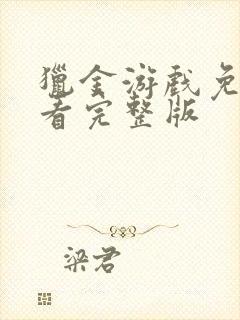 獵金游戲免
看完整版
梁君